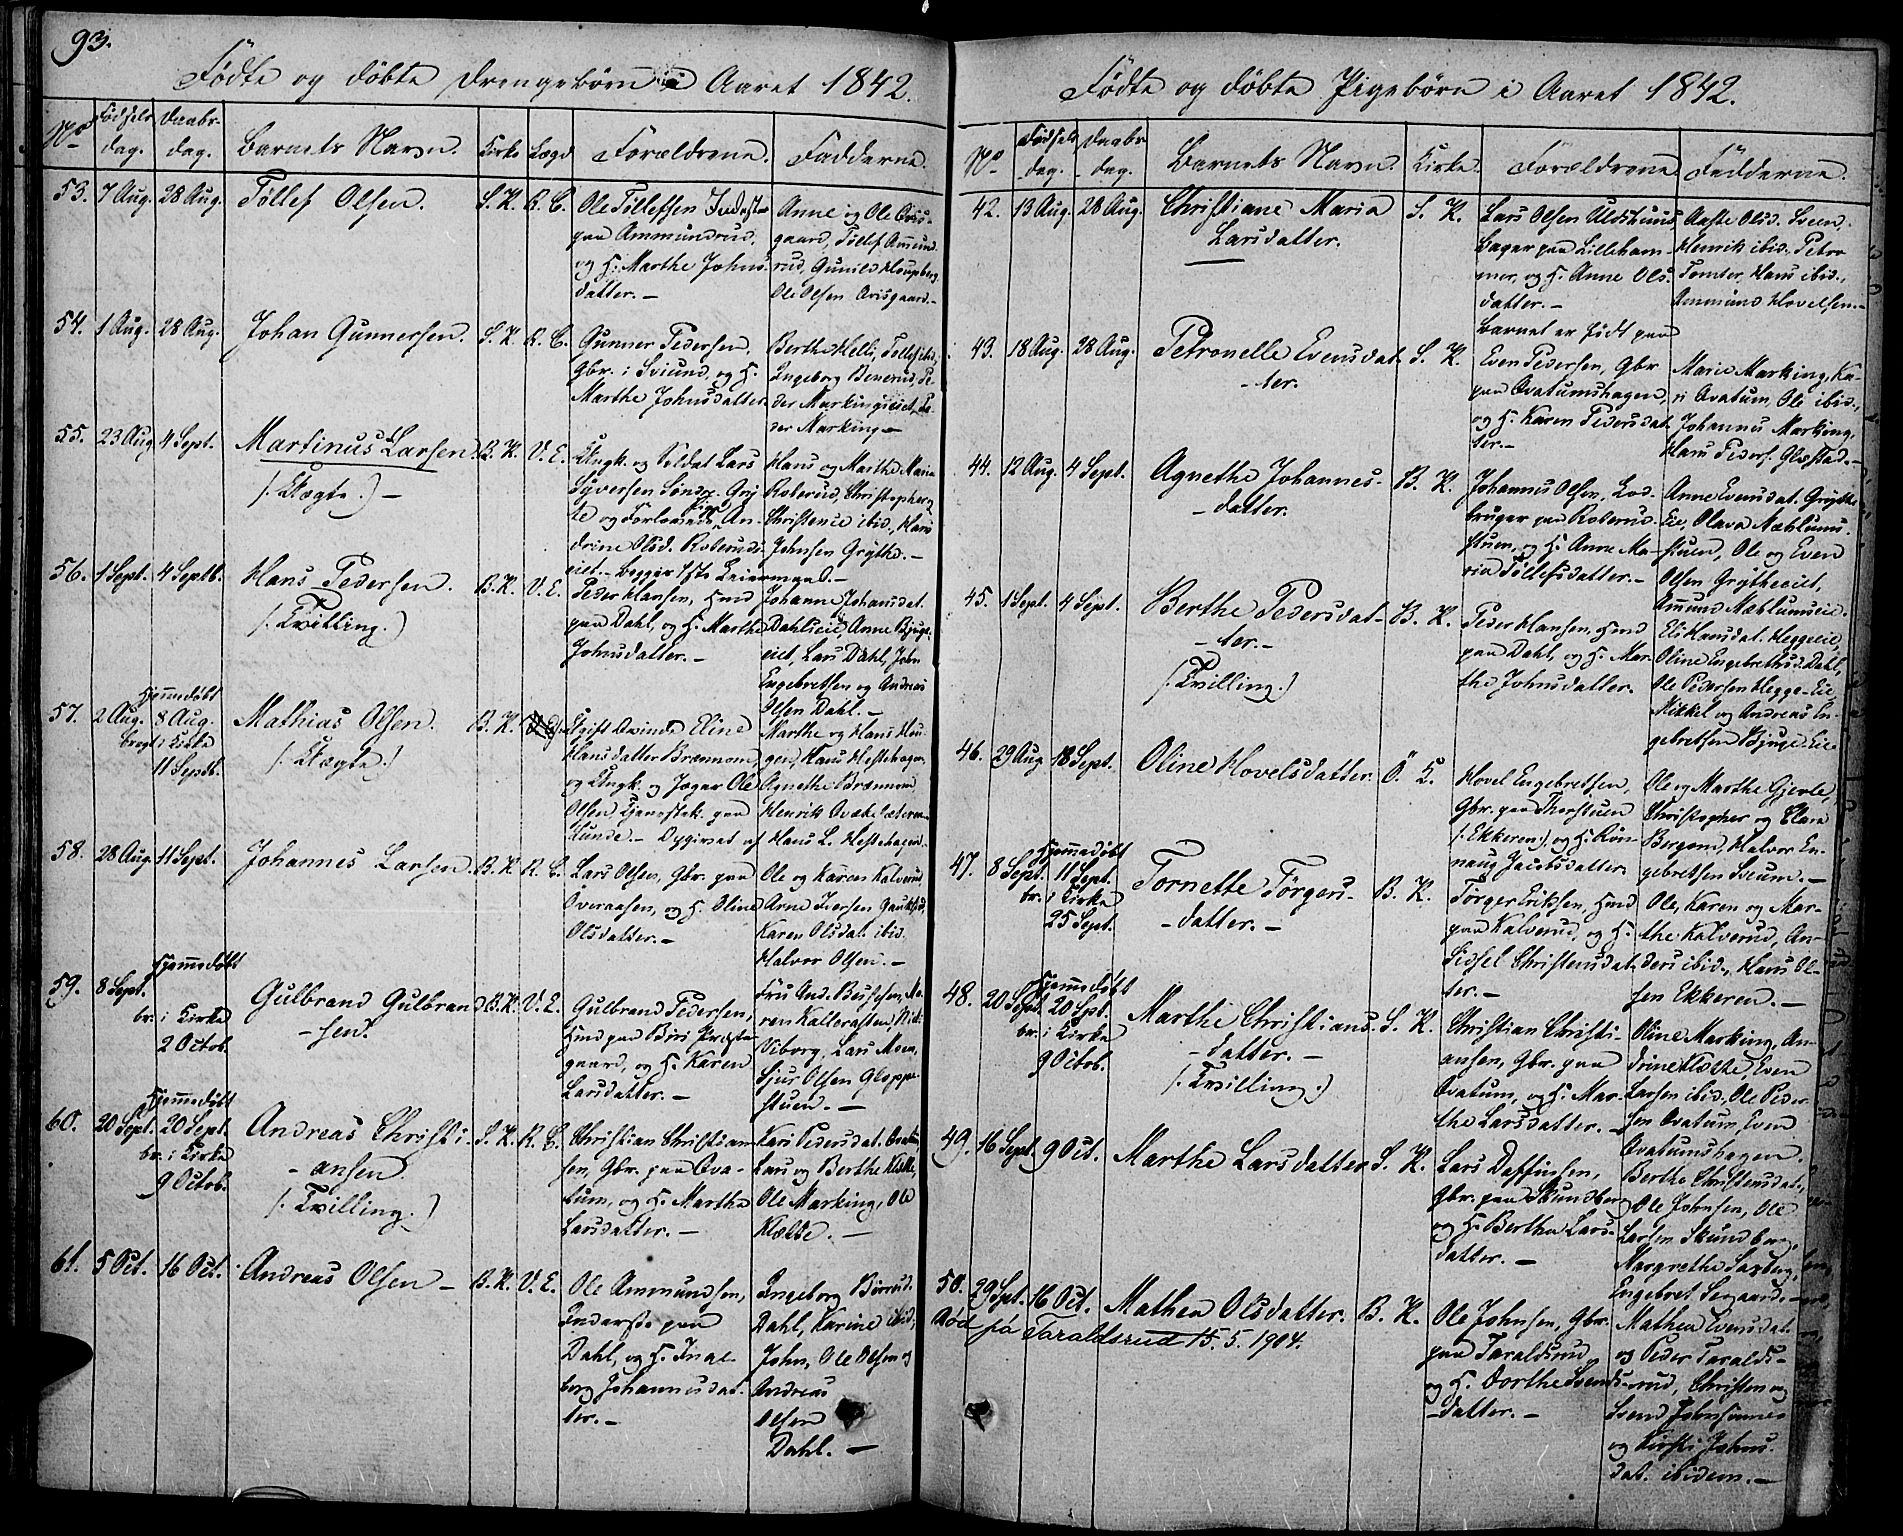 93.
Födte og döbte Drengebørn i Aaret 1842.
No Fødsels dag. Daabs dag. Barnets Navn. Kirke Lægd Forældrene. Fadderne.
53. 7 Aug. 28 Aug. Tøllef Olsen. S. K. R. C.
Ole Tøllefsen Inderst
paa Ammundrud,
og H. Marthe Johns-
datter.—
Anne og Ole Ovris-
gaard, Tøllef Ammund-
rud, Gunild
Ole Olsen Ovrisgaard.—
54. 1 Aug. 28 Aug. Johan Gunnersen. S. K. R. C.
Gunner Pedersen,
Gbr. i Sveund, og H.
Marthe Johnsdatter.
Berthe Tøllef ibid.
Ingeborg Pe-
der Markingseiet, Pe-
der Marking—
55. 23 Aug 4 Sept. Martinus Larsen B. K. V. E.
(: Uægte :)—
Ungk. og Soldat Lars
Syversen Søndr. Gry-
te og Forlovede Pige An-
drine Olsd. Roberuds-
eiet.— Begges 1ste Leiermaal.—
Hans og Marthe Maria
Roberud, Christopher og
Christence ibid.,
Johnsen Grythe.—
56. 1 Sept. 4 Septb. Hans Pedersen. B. K. V. E.
(: Tvilling. :)
Peder Hansen, Hmd
paa Dahl, og H. Marthe
Johnsdatter.—
Johanne Johansdat.
Dahlseie, Anne Bjuge-
eiet, Lars Dahl, John
Engebretsen og Andreas
Olsen Dahl.—
57. 2 Aug. Hjemmedøbt 8 Aug. Mathias Olsen. B. K.
bragt i Kirke
11 Septb.
(: Uægte :)
Ugift Qvinde Eline
Hansdatter Brænnom,
og Ungk. og Jæger Ole
Olsen paa
Lunde.— Opgivet af Hans L. Heftehagen.
Marthe og Hans Hau-
gen, Hans Heftehagen,
Agnethe Brænnom,
Henrik
58. 28 Aug. 11 Sept. Johannes Larsen. B. K. R. C.
Lars Olsen, Gbr. paa
Överaasen, og H. Oline
Olsdatter.—
Ole og Karen Kalverud
Arne Iversen
Karen Olsdat. ibid.
Halvor Olsen.—
59. 8 Sept. Hjemmedøbt
br. i Kirke
2 Octob.
Gulbrand Gulbrand-
-sen.
B. K. V. E.
Gulbrand Pedersen,
Hmd paa Biri Præste-
gaard, og H. Karen
Larsdatter.—
Fru And.
ren
Viborg, Lars Moen,
Sjur Olsen Gloppe-
stuen.—
60. 20 Sept. Hjemmedøbt 20 Sept.
br. i Kirke
9 Octob.
Andreas Christi-
-ansen.
(: Tvilling. :)
S. K. R. C.
Christian Christian-
sen, Gbr. paa Ova-
tum, og H. Marthe
Larsdatter.—
Kari Pedersdat. Ovatum,
Lars og Berthe
Ole Marking, Ole
Klætte.—
61. 5 Oct. 16 Oct. Andreas Olsen— B. K. V. E.
Ole Ammundsen,
Inderste paa
Dahl, og H. Inge-
borg Johannesdat-
ter.—
Ingeborg
Dahl, Karine ibid.
John, Ole Olsen og
Andreas
Olsen
Dahl.—
Fødte og døbte Pigebørn i Aaret 1842.
No Fødsels dag. Daabs dag. Barnets Navn. Kirke. Forældrene Fadderne.
42. 13 Aug. 28 Aug. Christiane Maria
Larsdatter.
S. K.
Lars Olsen
Bager paa Lilleham-
mer, og H. Anne Ols-
datter.—
Barnet er født paa
Aaste Olsd. Sveen,
Henrik ibid. Petro
Tomter, Hans ibid.,
Ammund Hovelsen.—
43. 18 Aug. 28 Aug. Petronelle Evensdat-
-ter.
S. K.
Even Pedersen, Gbr.
paa Ovatumshagen,
og H. Karen Pedersdat-
ter.—
Marie Marking, Ka-
ri Ovatum, Ole ibid.,
Johannes Marking,
Hans Peders. Glæstad.—
44. 12 Aug. 4 Sept. Agnethe Johannes-
-datter.
B. K.
Johannes Olsen, Lod-
bruger paa Roberud-
stuen, og H. Anne Ma-
ria Tøllefsdatter.—
Anne Evensdat. Grythe-
Eie, Olava Mæhlums-
stuen, Ole og Even
Olsen Grytheeiet,
Amund Mæhlumseie.
45. 1 Sept. 4 Sept. Berthe Pedersdat-
-ter.—
(: Tvilling. :)
B. K.
Peder Hansen, Hmd
paa Dahl, og H. Mar-
the Johnsdatter.
Eli Hansdat. Heggeeie,
Oline Engebrethsd. Dahl,
Ole Pedersen Hegge-Eie
Mikkel og Andreas En-
gebretsen Bjuge-Eie
46. 29 Aug 18 Sept. Oline Hovelsdatter. Ö. L.
Hovel Engebretsen,
Gbr. paa Thorstuen
(: Ekkeren), og H. Røn-
naug Jacobsdatter
Ole og Marthe Gjevle,
Christopher og Clara
Bergum, Halvor En-
gebretsen Sveum.—
47. 8 Sept. Hjemmedøbt 11 Sept.
br. i Kirke
25 Sept.
Tornette Törgers-
-datter.—
B. K.
Törger Eriksen, Hmd
paa Kalverud, og H.
Sidsel Christensdat-
ter.—
Ole, Karen og Mar-
the Kalverud, An-
ders ibid., Hans Ol-
sen Ekkeren.—
48. 20 Sept. Hjemmedøbt 20 Spt.
br. i Kirke
9 Octob.
Marthe Christians-
-datter.—
(: Tvilling. :)
S. K.
Christian Christi-
ansen, Gbr. paa
Ovatum, og H. Mar-
the Larsdatter.—
Oline Marking, An-
drine Klætte, Even
Larsen ibid., Ole Peder-
sen Ovatum, Even
Ovatumshagen.
49. 16 Sept. 9 Oct. Marthe Larsdatter. S. K.
Lars Daffinsen,
Gbr. paa Skundberg
og H. Berthe Lars-
datter.—
Berthe Christensdat.,
Ole Johnsen, Ole
Larsen Skundberg,
Margrethe Saxberg,
Engebret Seegaard.—
50. 29 Spt. 16 Oct. Mathea Olsdatter. B. K.
Död på Taraldsrud 15. 5. 1904.
Ole Johnsen, Gbr.
paa Taraldsrud
og H. Dorthe Svends-
-datter.—
Mathea Evensdat.
og Peder Taralds-
rud, Christen og
Svend Johnsønnes
og Kirsti Johns-
dat. ibidem.—